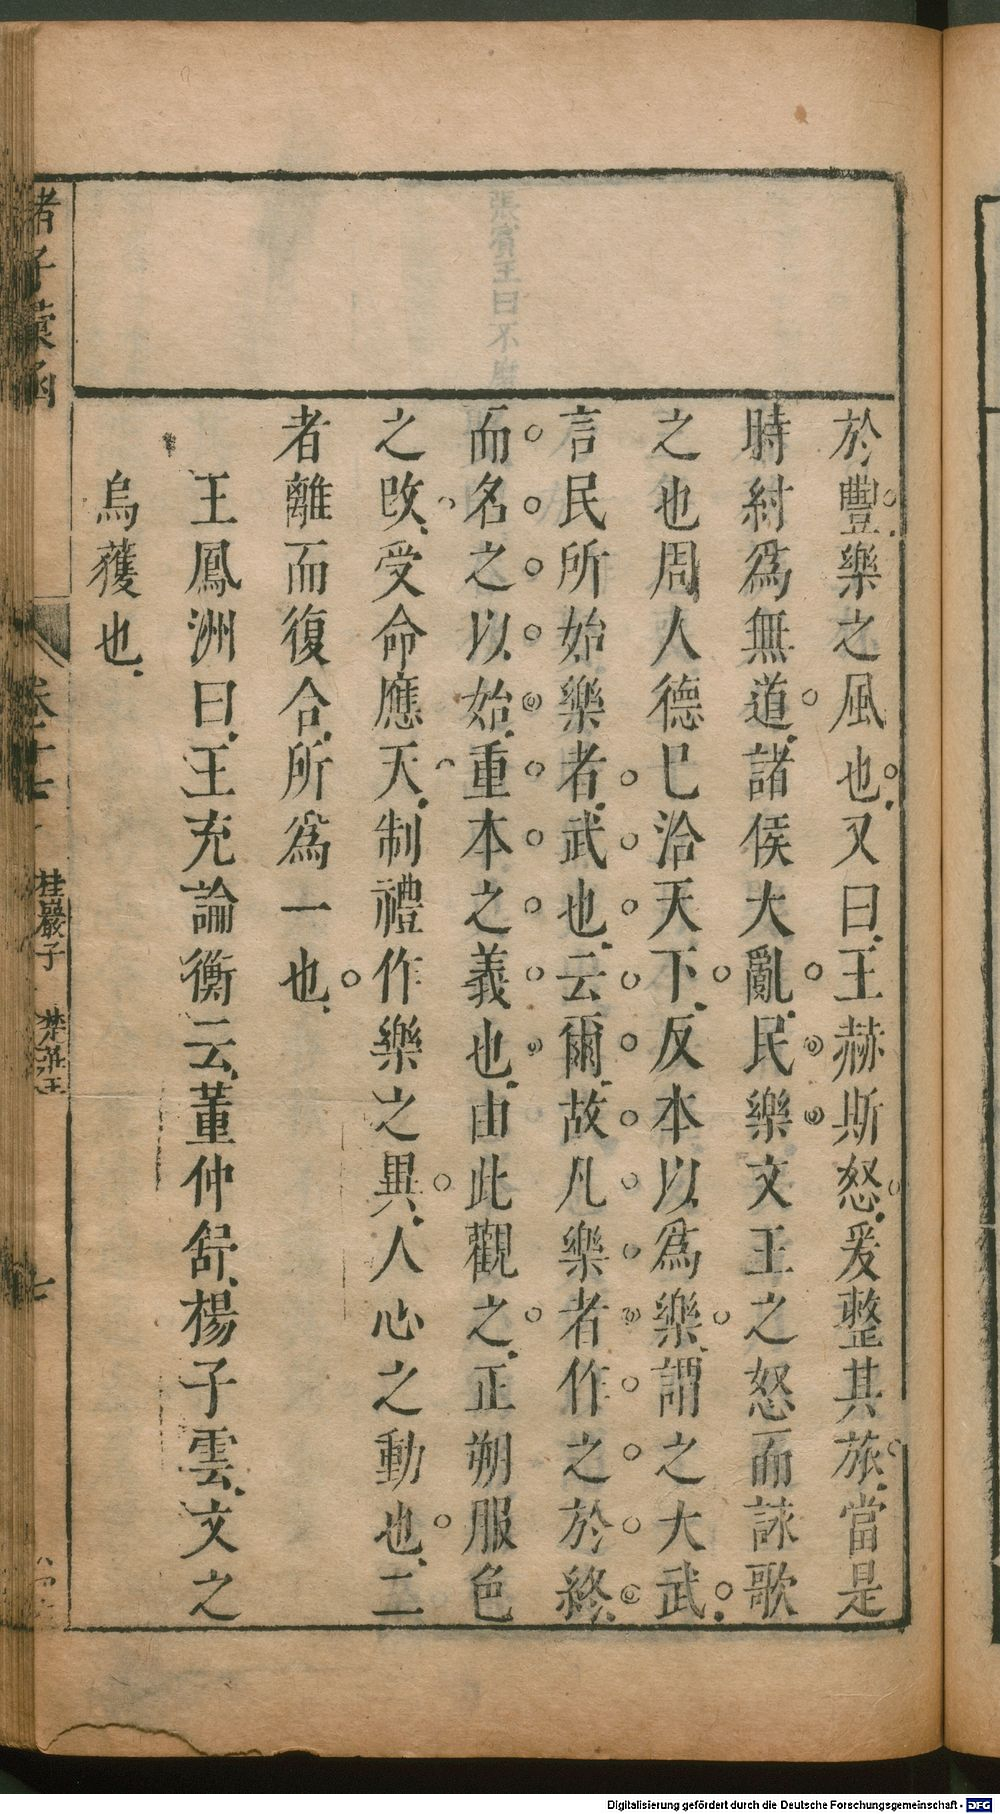 於豐樂之風也又曰王赫斯怒爰整其旅當是
時紂爲無道諸侯大亂民樂文王之怒而詠歌
之也周人德已洽天下反本以爲樂謂之大武
言民所始樂者武也云爾故凡樂者作之於終
而名之以始重本之義也由此觀之正朔服色
之改受命應天制禮作樂之異人心之動也二
者離而復合所爲一也
王鳳洲曰王充論衡云董仲舒楊子雲文之
烏獲也
諸子彙函
卷十七
桂巖子
楚莊王
七
Digitalisierung gefördert durch die Deutsche Forschungsgemeinschaft - DFG